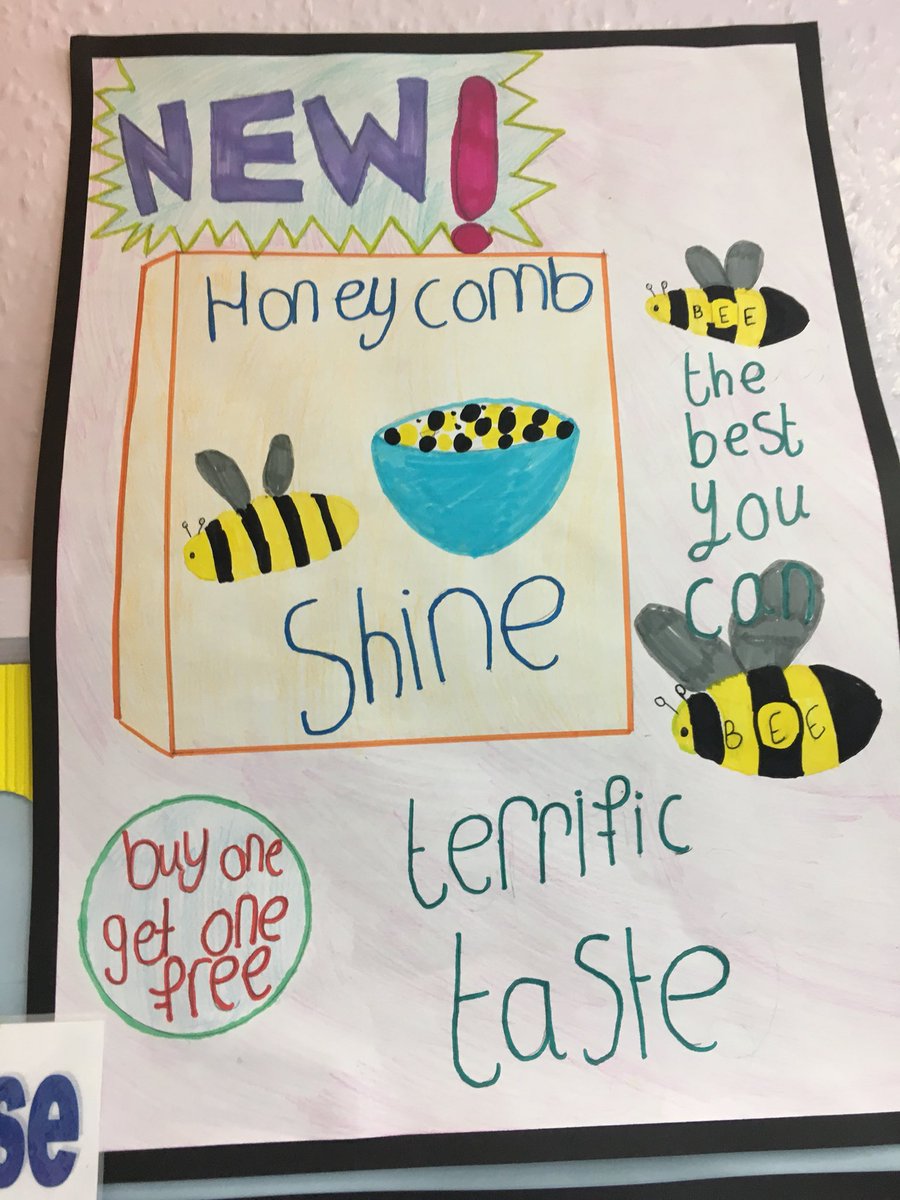 NEW!
Honeycomb
Shine
BEE
the
best
you
can
BEE
terrific
taste
buy one
get one
free
se